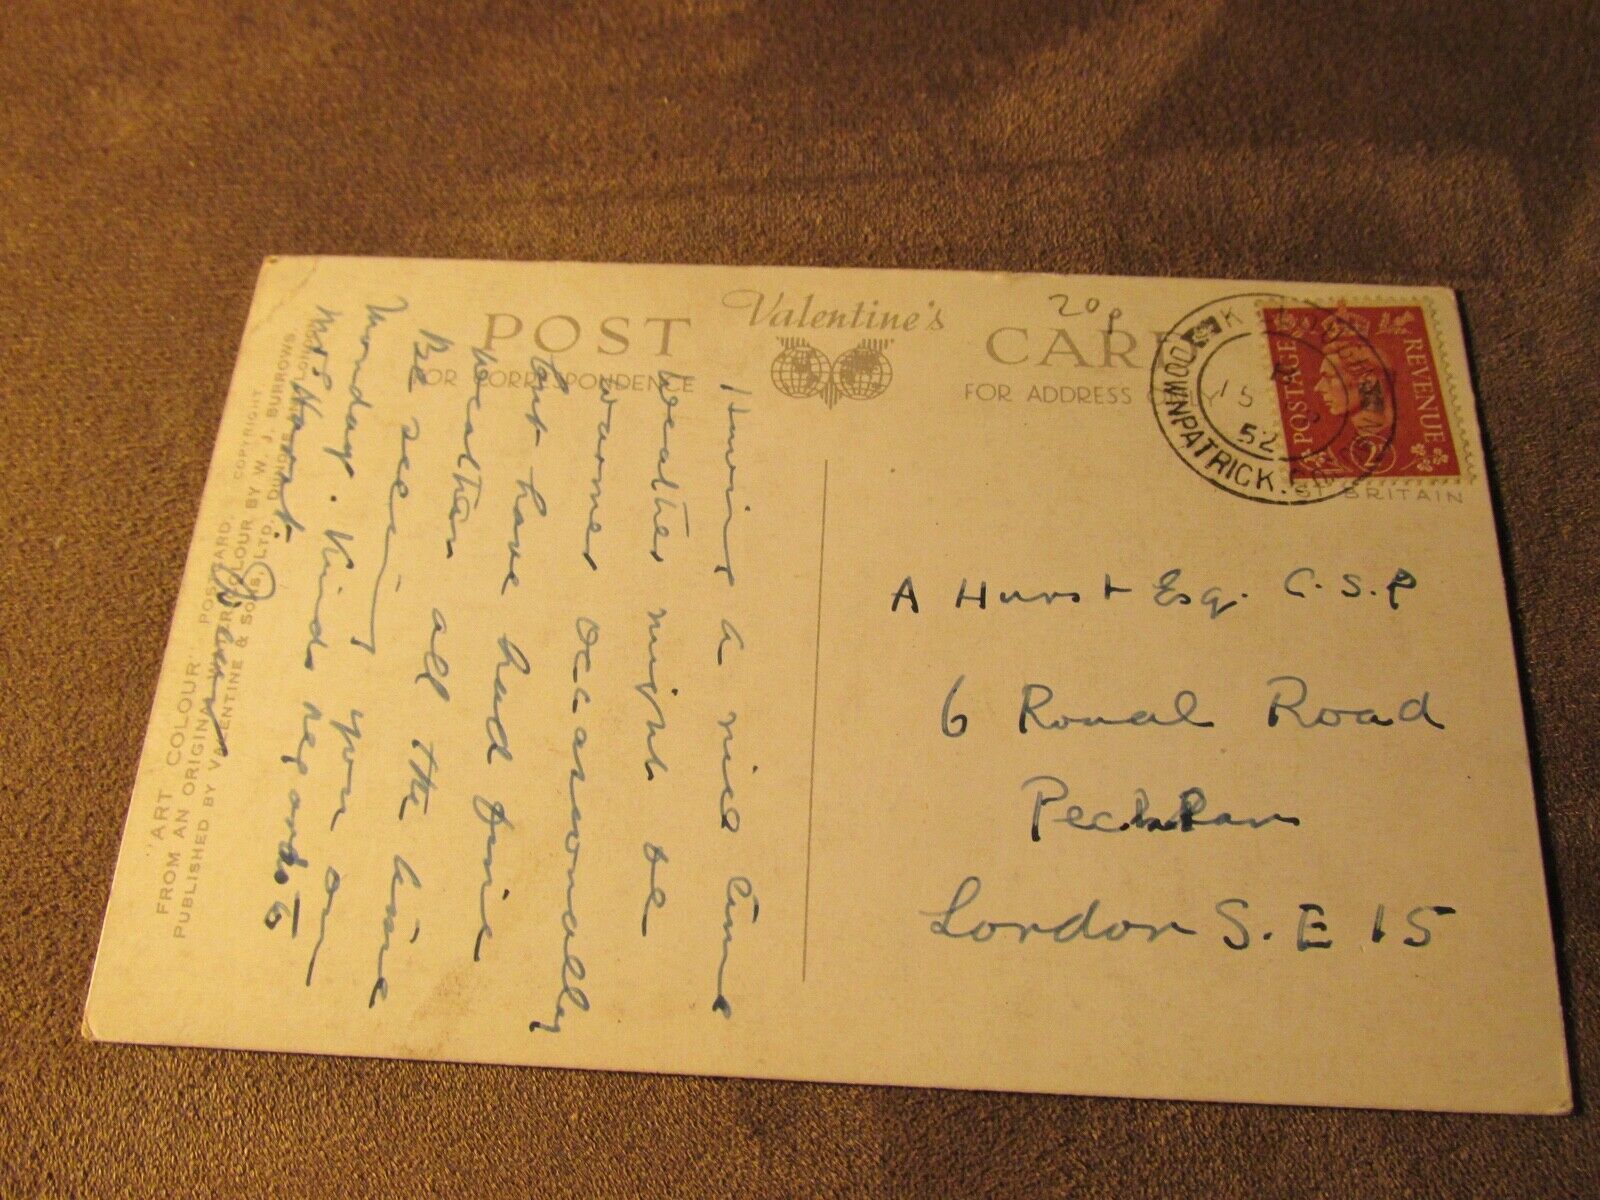 POST
Valentine's
CARD
FOR CORRESPONDENCE
FOR ADDRESS ONLY
20p
KILPATRICK
52
POSTAGE
REVENUE
2D
GT. BRITAIN
Having a nice time
Weather might be
warmer occasionally
but have had fine
weather all the time
Be seeing you on
Monday. Kinds regards to
Mrs Hurst.
A Hurst Esq. C.S.P
6 Ronal Road
Peckham
London S.E 15
"ART COLOUR" POSTCARD. COPYRIGHT
FROM AN ORIGINAL WATER COLOUR BY W. J. BURROWS
PUBLISHED BY VALENTINE & SONS, LTD. DUNDEE AND LONDON